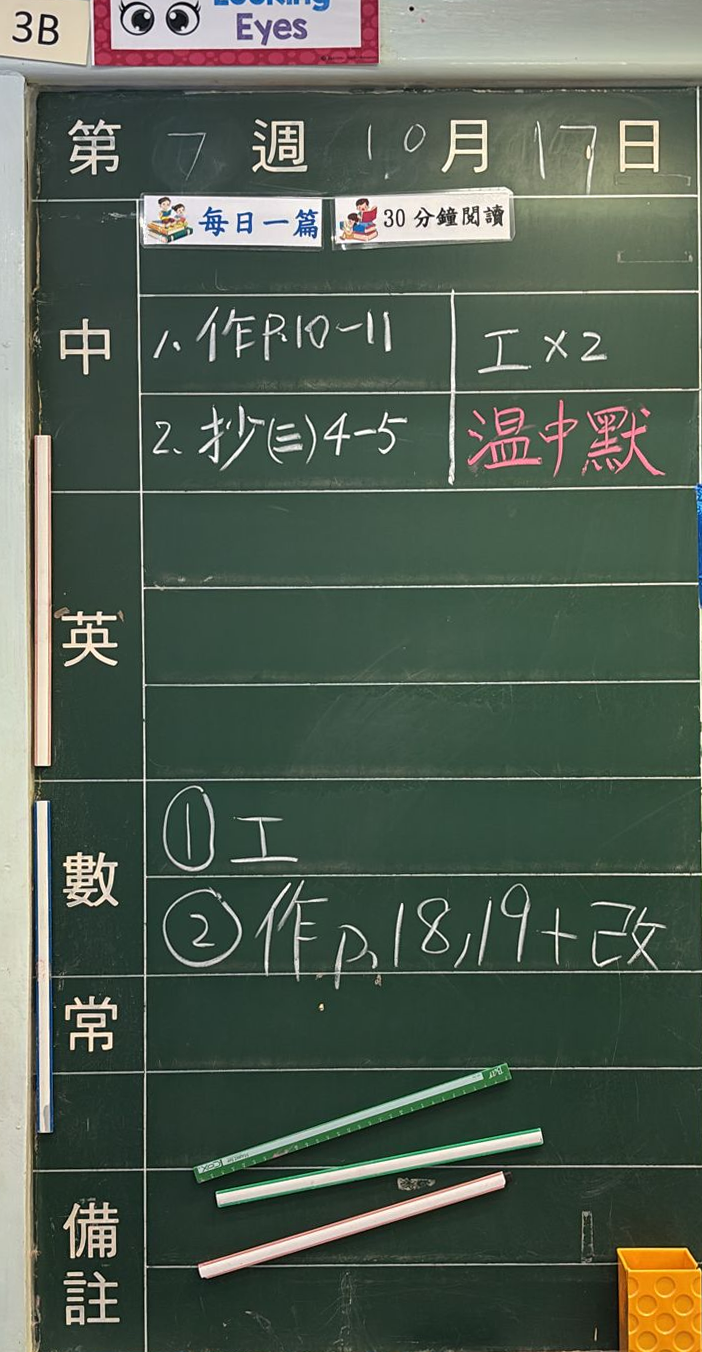 3B
Looking
Eyes
第 7 週 10 月 17 日
每日一篇 30分鐘閱讀
中
1. 作P.10-11 工×2
2. 抄(三)4-5 温中默
英
數
① 工
② 作P.18,19+改
常
備註